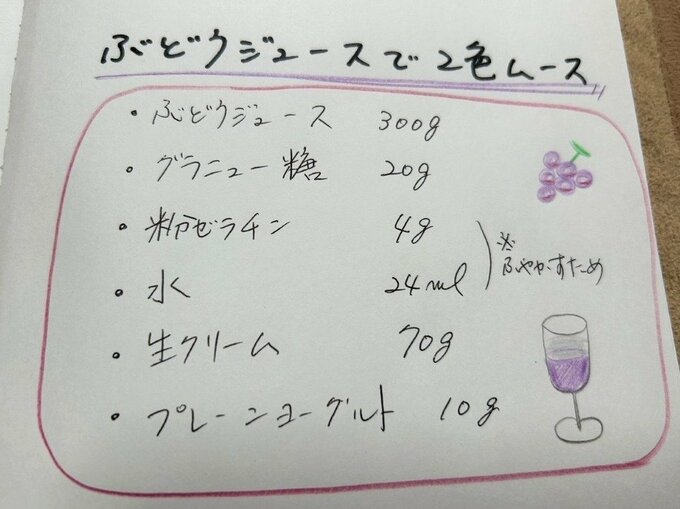 ぶどうジュースで2色ムース
・ぶどうジュース 300g
・グラニュー糖 20g
・粉ゼラチン 4g
・水 24ml
※ふやかすため
・生クリーム 70g
・プレーンヨーグルト 10g